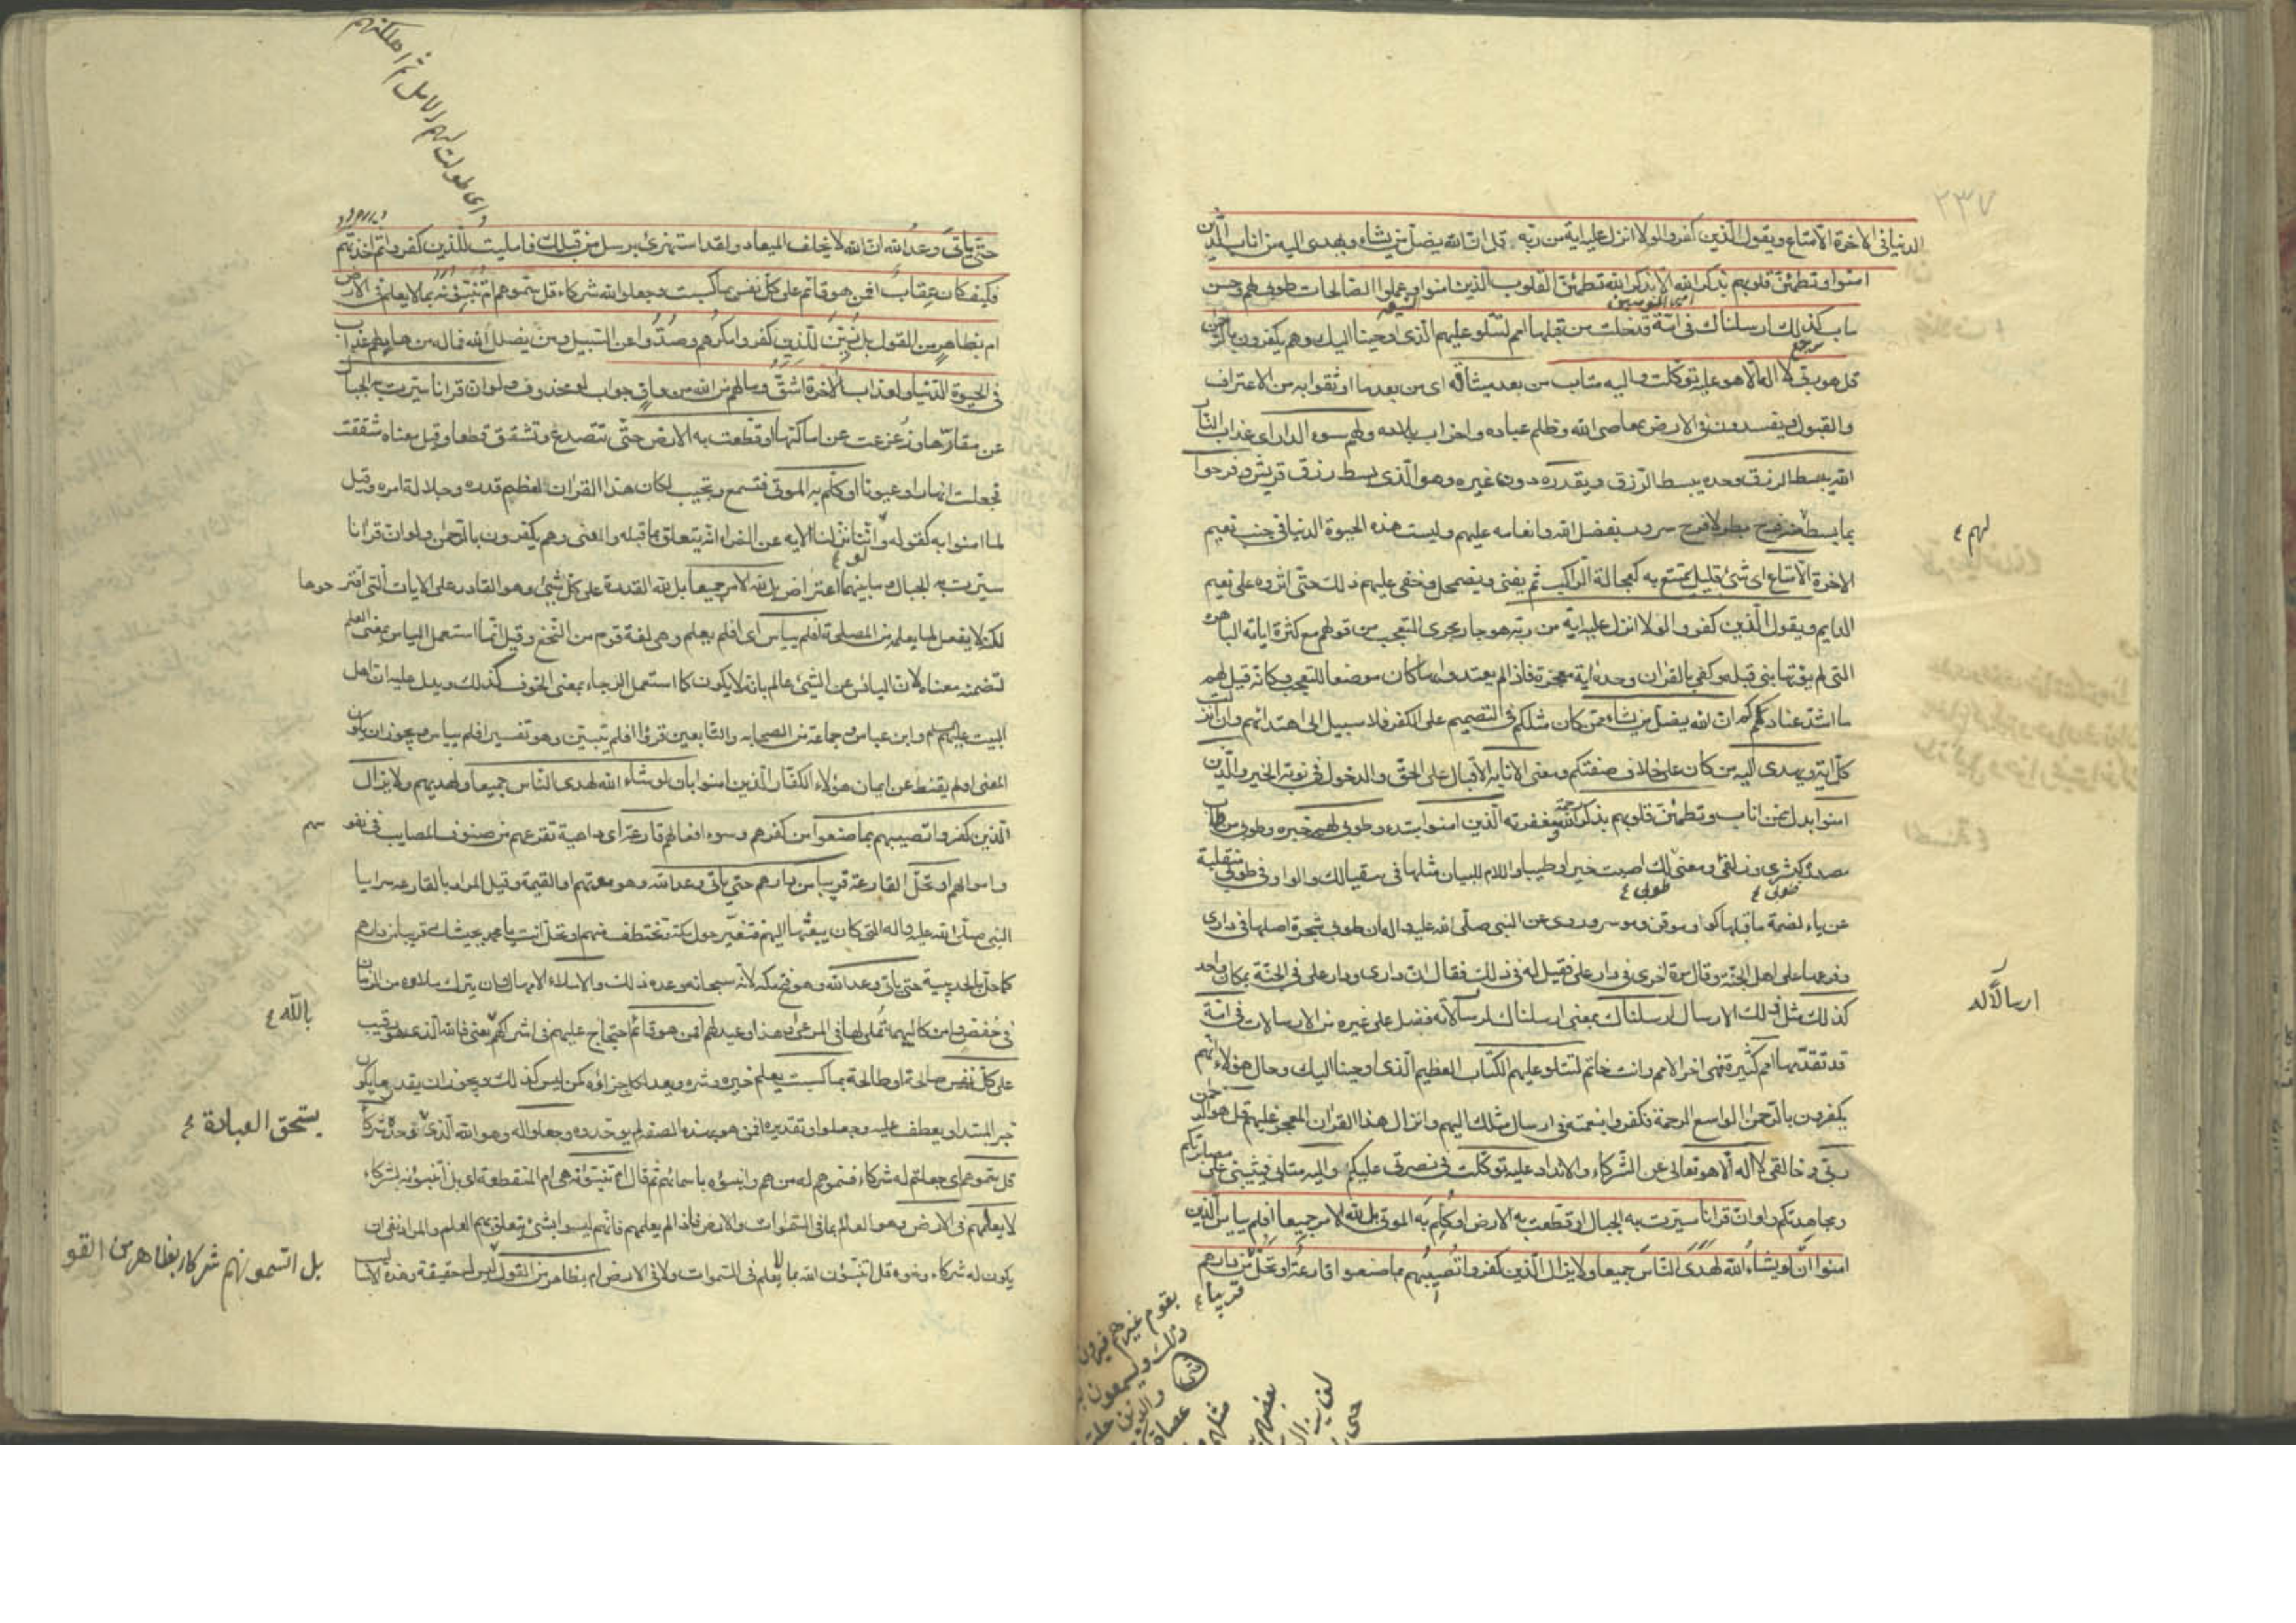 ٢٣٧
الدنيا في الاخرة الا متاع ويقول الذين كفروا لولا انزل عليه اية من ربه قل ان الله يضل من يشاء ويهدى اليه من اناب الذين
امنوا وتطمئن قلوبهم بذكر الله الا بذكر الله تطمئن القلوب الذين امنوا وعملوا الصالحات طوبى لهم وحسن
ماب كذلك ارسلناك في امة قد خلت من قبلها امم لتتلو عليهم الذى اوحينا اليك وهم يكفرون بالرحمن
قل هو ربى لا اله الا هو عليه توكلت واليه متاب من بعد ميثاقه اى من بعد ما اوثقوا به من الاعتراف
والقبول ويفسدون في الارض بمعاصى الله وظلم عباده واخراب بلاده ولهم سوء الدار اى عذاب النار
الله يبسط الرزق وحده يبسط الرزق ويقدره دون غيره وهو الذى بسط رزق قريش وفرحوا
بما بسط فرح بطر لا فرح سرور بفضل الله وانعامه عليهم وليست هذه الحيوة الدنيا في جنب نعيم
لهم
الاخرة الا متاع اى شئ قليل يتمتع به كعجالة الراكب ثم يفنى ويضمحل وخفى عليهم ذلك حتى اثروه على نعيم
الدايم ويقول الذين كفروا لولا انزل عليه اية من ربه هو جار مجرى التعجب من قولهم مع كثرة اياته الباهرة
التى لم يؤتها نبى قبله وكفى بالقران وحده اية معجزة فاذا لم يعتدوا بها كان موضعا للتعجب وكانه قيل لهم
ما اشد عنادكم ان الله يضل من يشاء ممن كان مثلكم في التصميم على الكفر فلا سبيل الى اهتدائهم وان انزلت
كل اية ويهدى اليه من كان على خلاف صفتكم ومعنى الانابة الاقبال على الحق والدخول في نوبة الخير والذين
امنوا بدل ممن اناب وتطمئن قلوبهم بذكر رحمته ومغفرته الذين امنوا ابتداء وطوبى لهم خبره وطوبى من طاب
مصدر كبشرى وزلفى ومعنى طوبى لك اصبت خيرا وطيبا واللام للبيان مثلها في سقيا لك والواو في طوبى منقلبة
عن ياء لضمة ما قبلها كواو موقن وموسر وروى عن النبى صلى الله عليه واله ان طوبى شجرة اصلها في دارى
وفرعها على اهل الجنة وقال مرة اخرى في دار على فقيل له في ذلك فقال ان دارى ودار على في الجنة بمكان واحد
كذلك مثل ذلك الارسال ارسلناك بمعنى ارسلناك ارسالا له فضل على غيره من الارسالات في امة
ارسالا له
قد تقدمها امم كثيرة فهى اخر الامم وانت خاتم لتتلو عليهم الكتاب العظيم الذى اوحينا اليك وحال هؤلاء انهم
يكفرون بالرحمن الواسع الرحمة فكفروا بنعمته في ارسال مثلك اليهم وانزال هذا القران المعجز عليهم قل هو الرحمن
ربى وخالقى لا اله الا هو تعالى عن الشركاء والانداد عليه توكلت في نصرتى عليكم واليه متابى فيثيبنى على مصابرتكم
ومجاهدتكم ولو ان قرانا سيرت به الجبال او قطعت به الارض او كلم به الموتى بل لله الامر جميعا افلم ييأس الذين
امنوا ان لو يشاء الله لهدى الناس جميعا ولا يزال الذين كفروا تصيبهم بما صنعوا قارعة او تحل من دارهم
قريبا
اى طولت لهم الامل ثم اهلكتهم
حتى يأتى وعد الله ان الله لا يخلف الميعاد ولقد استهزئ برسل من قبلك فامليت للذين كفروا ثم اخذتهم
فكيف كان عقاب افمن هو قائم على كل نفس بما كسبت وجعلوا لله شركاء قل سموهم ام تنبئونه بما لا يعلم في الارض
ام بظاهر من القول بل زين للذين كفروا مكرهم وصدوا عن السبيل ومن يضلل الله فما له من هاد لهم عذاب
في الحيوة الدنيا ولعذاب الاخرة اشق وما لهم من الله من واق جواب لو محذوف ولو ان قرانا سيرت به الجبال
عن مقارها وزعزعت عن اماكنها او قطعت به الارض حتى تتصدع وتشقق قطعا وقيل معناه شققت
فجعلت انهارا وعيونا او كلم به الموتى فتسمع وتجيب لكان هذا القران لعظيم قدره وجلالة امره وقيل
لما امنوا به كقوله ولو اننا نزلنا الاية عن الفراء انه يتعلق بما قبله والمعنى وهم يكفرون بالرحمن ولو ان قرانا
سيرت به الجبال وما بينهما اعتراض بل لله الامر جميعا بل لله القدرة على كل شئ وهو القادر على الايات التى اقترحوها
لكن لا يفعل لما يعلمه من المصلحة افلم ييأس اى افلم يعلم وهى لغة قوم من النخع وقيل انما استعمل اليأس بمعنى العلم
لتضمنه معناه لان اليائس عن الشئ عالم بانه لا يكون كما استعمل الرجاء بمعنى الخوف كذلك ويدل عليه ان اهل
البيت عليهم السلم وابن عباس وجماعة من الصحابة والتابعين قرؤا افلم يتبين وهو تفسير افلم ييأس ويجوز ان يكون
المعنى اولم يقنط عن ايمان هؤلاء الكفار الذين امنوا بان لو شاء الله لهدى الناس جميعا ولهديهم ولا يزال
الذين كفروا تصيبهم بما صنعوا من كفرهم وسوء افعالهم قارعة اى داهية تقرعهم من صنوف المصايب في نفوسهم
واموالهم او تحل القارعة قريبا من دارهم حتى يأتى وعد الله وهو موتهم او القيمة وقيل المراد بالقارعة سرايا
النبى صلى الله عليه واله التى كان يبعثها اليهم فتغير حول مكة تختطف منهم او تحل انت يا محمد بجيشك قريبا من دارهم
كما حل بالحديبية حتى يأتى وعد الله وهو فتح مكة لانه سبحانه وعده ذلك والاملاء الامهال وان يترك ملاوة من الزمان
في خفض وامن كالبهيمة تملى لها في المرعى وهذا وعيد لهم افمن هو قائم احتجاج عليهم في اشراكهم يعنى فالله الذى هو رقيب
بالله
على كل نفس صالحة او طالحة بما كسبت يعلم خيره وشره ويعد لكل جزاؤه كمن ليس كذلك ويجوز ان يقدر ما يكون
خبر المبتدا ويعطف عليه وجعلوا وتقديره افمن هو بهذه الصفة لم يوحدوه وجعلوا له وهو الله الذى وحده شركاء
يستحق العبادة
قل سموهم اى جعلتم له شركاء فسموهم له من هم وانبئوه باسمائهم ثم قال ام تنبئونه هى ام المنقطعة اى بل اتنبئونه بشركاء
لا يعلمهم في الارض وهو العالم بما في السموات والارض فاذا لم يعلمهم فانهم ليسوا بشئ يتعلق بهم العلم والمراد نفى ان
يكون له شركاء ونحوه قل اتنبئون الله بما لا يعلم في السموات ولا في الارض ام بظاهر من القول ليس له حقيقة وهذه الاسا
بل اتسمونهم شركاء بظاهر من القو